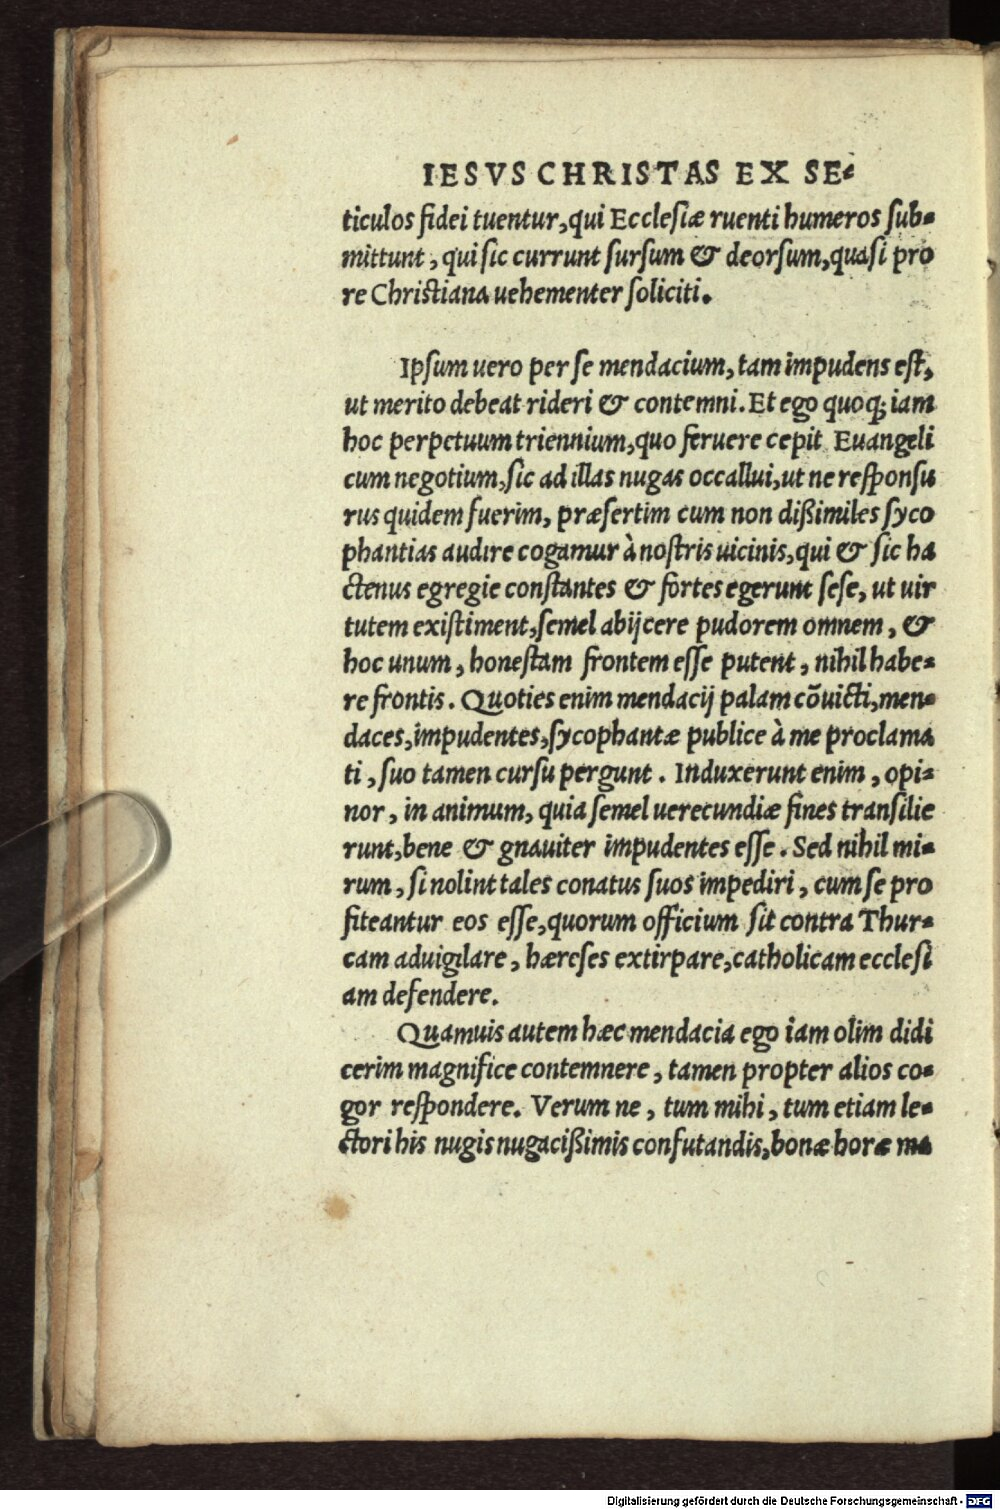 IESVS CHRISTAS EX SE-
ticulos fidei tuentur, qui Ecclesiæ ruenti humeros sub-
mittunt, qui sic currunt sursum & deorsum, quasi pro
re Christiana uehementer soliciti.
Ipsum uero per se mendacium, tam impudens est,
ut merito debeat rideri & contemni. Et ego quoq; iam
hoc perpetuum triennium, quo feruere cepit Euangeli
cum negotium, sic ad illas nugas occallui, ut ne responsu
rus quidem fuerim, præsertim cum non dißimiles syco
phantias audire cogamur à nostris uicinis, qui & sic ha
ctenus egregie constantes & fortes egerunt sese, ut uir
tutem existiment, semel abijcere pudorem omnem, &
hoc unum, honestam frontem esse putent, nihil habe-
re frontis. Quoties enim mendacij palam cõuicti, men-
daces, impudentes, sycophantæ publice à me proclama
ti, suo tamen cursu pergunt. Induxerunt enim, opi-
nor, in animum, quia semel uerecundiæ fines transilie
runt, bene & gnauiter impudentes esse. Sed nihil mi-
rum, si nolint tales conatus suos impediri, cum se pro
fiteantur eos esse, quorum officium sit contra Thur-
cam aduigilare, hæreses extirpare, catholicam ecclesi
am defendere.
Quamuis autem hæc mendacia ego iam olim didi
cerim magnifice contemnere, tamen propter alios co-
gor respondere. Verum ne, tum mihi, tum etiam le-
ctori his nugis nugacißimis confutandis, bonæ horæ ma
Digitalisierung gefördert durch die Deutsche Forschungsgemeinschaft - DFG